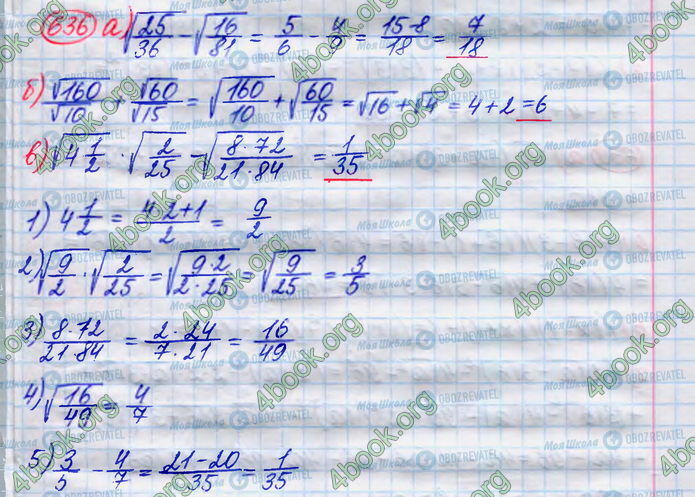 636 а) √(25/36) - √(16/81) = 5/6 - 4/9 = (15-8)/18 = 7/18
б) √160/√10 + √60/√15 = √(160/10) + √(60/15) = √16 + √4 = 4 + 2 = 6
в) √(4 1/2) · √(2/25) - √(8·72/21·84) = 1/35
1) 4 1/2 = (4·2+1)/2 = 9/2
2) √(9/2) · √(2/25) = √(9·2/2·25) = √(9/25) = 3/5
3) 8·72/21·84 = 2·24/7·21 = 16/49
4) √(16/49) = 4/7
5) 3/5 - 4/7 = (21-20)/35 = 1/35
4book.org
Моя Школа
OBOZREVATEL